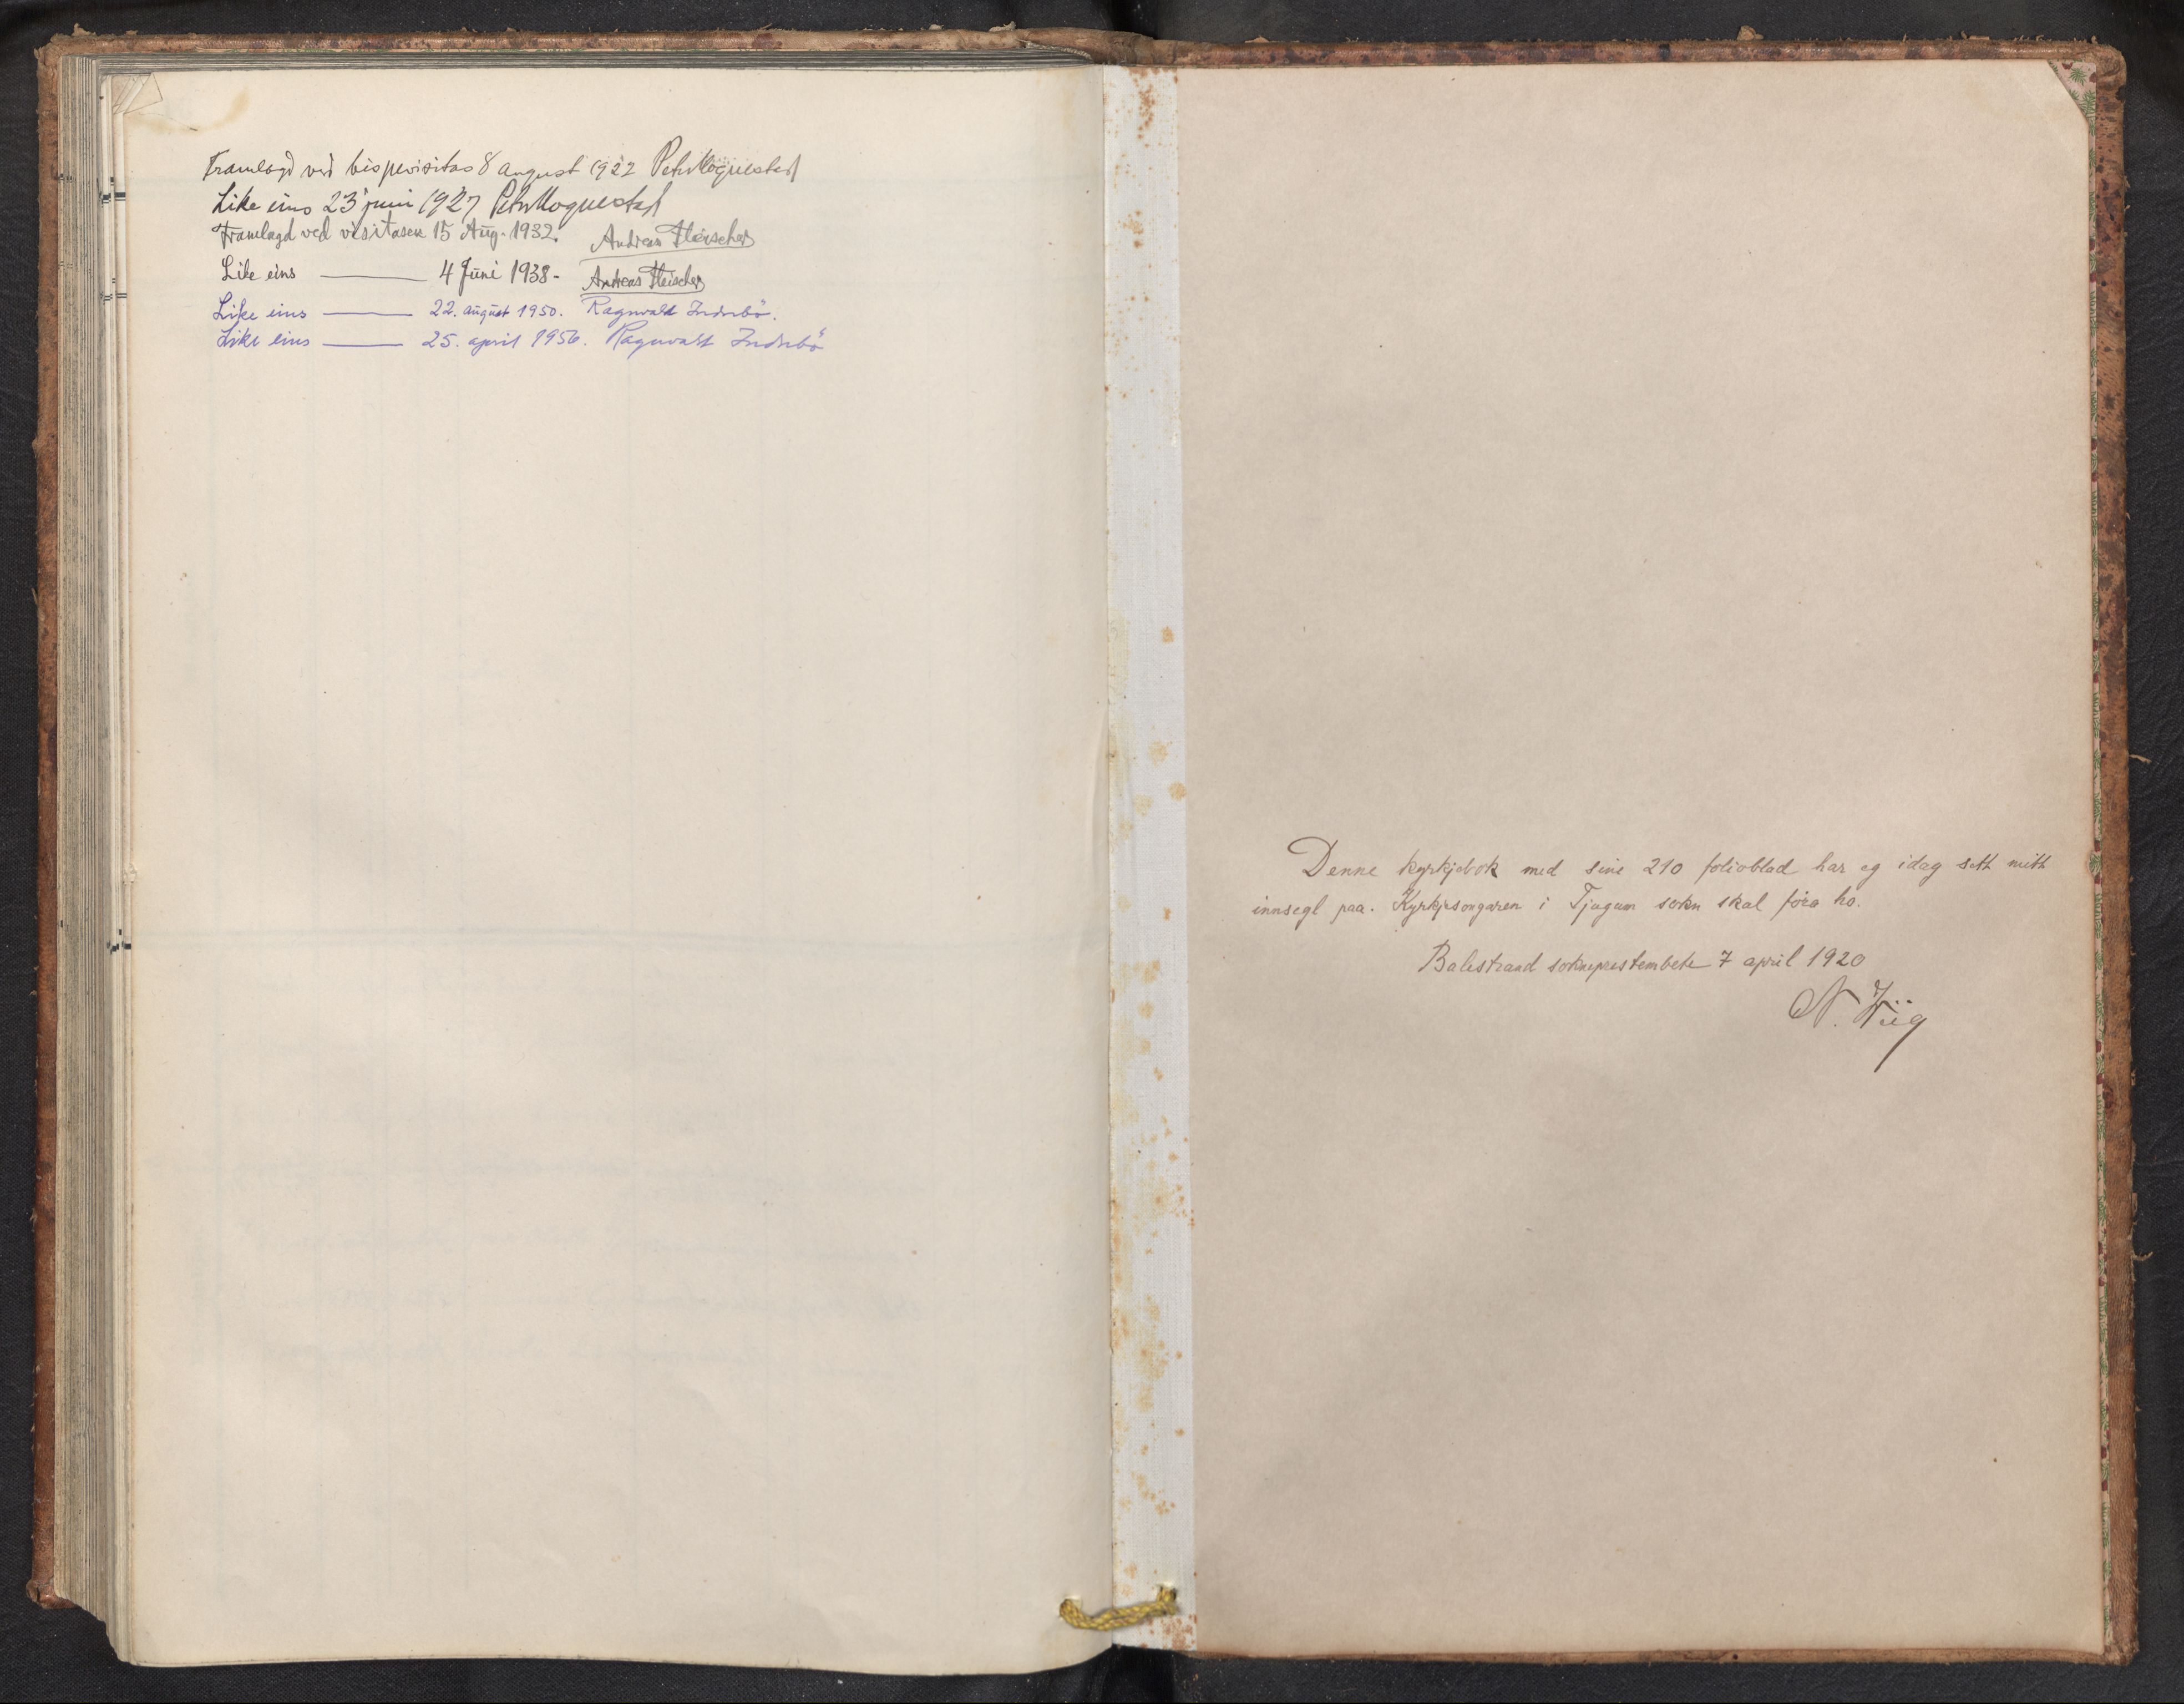 Framlagd ved bispevisitas 8 august 1922 Peter Hognestad
Like eins 23 juni 1927 Peter Hognestad
Framlagd ved visitasen 15 Aug. 1932. Andreas Fleischer
Like eins — 4 Juni 1938 - Andreas Fleischer
Like eins — 22. august 1950. Ragnvald Indrebö.
Like eins — 25. april 1956. Ragnvald Indrebö
Denne kyrkjebok med sine 210 folioblad har eg idag sett mitt
innsegl paa. Kyrkjesongaren i Tjugum sokn skal föra ho.
Balestrand sokneprestembete 7 april 1920
N. Wiig